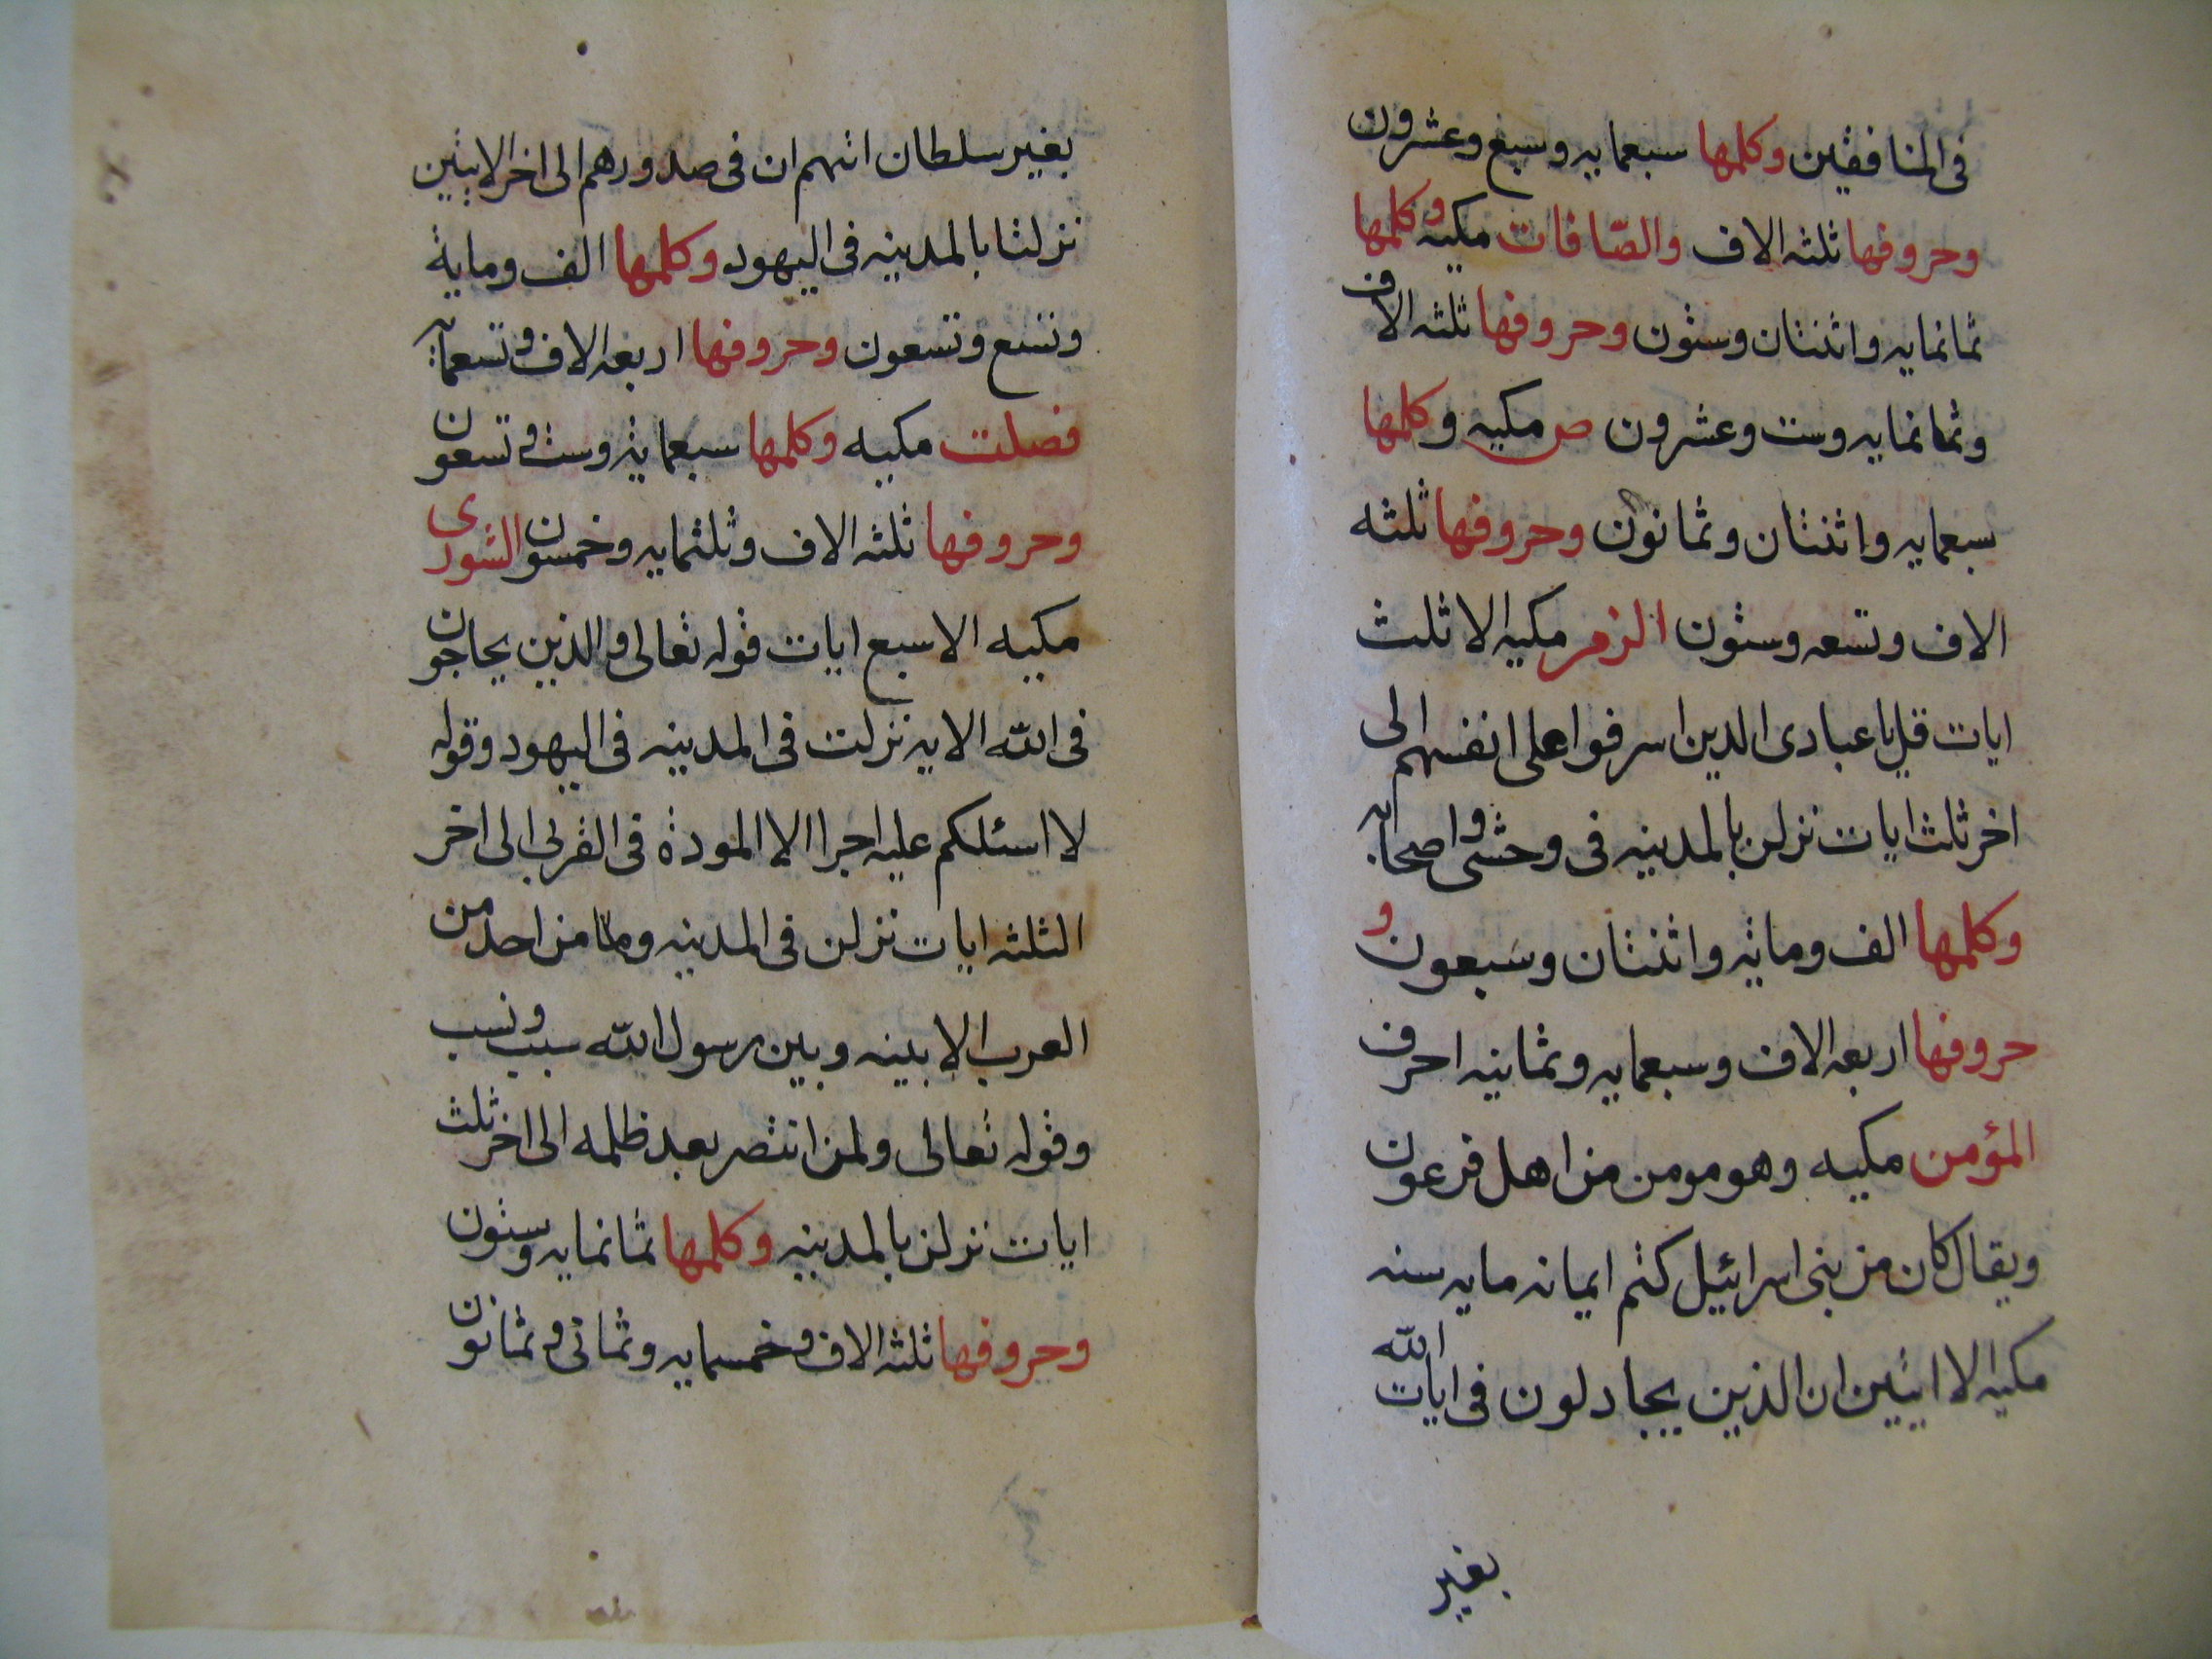 فى المنافقين وكلمها سبعمايه وسبع وعشرون
وحروفها ثلثه الاف والصّافات مكيه وكلمها
ثمانمايه واثنتان وستون وحروفها ثلثه الاف
وثمانمايه وست وعشرون ص مكيه وكلمها
سبعمايه واثنتان وثمانون وحروفها ثلثه
الاف وتسعه وستون الزمر مكيه الا ثلث
ايات قل يا عبادى الدين اسرفوا على انفسهم الى
اخر ثلث ايات نزلن بالمدينه فى وحشى واصحابه
وكلمها الف ومائه واثنتان وسبعون و
حروفها اربعه الاف وسبعمايه وثمانيه احرف
المؤمن مكيه وهو مومن من اهل فرعون
ويقال كان من بنى اسرائيل كتم ايمانه مايه سنه
مكيه الا ايتين ان الذين يجادلون فى ايات الله
بغير
بغير سلطان اتهم ان فى صدورهم الى اخر الايتين
نزلتا بالمدينه فى اليهود وكلمها الف وماية
وتسع وتسعون وحروفها اربعه الاف وتسعمايه
فصلت مكيه وكلمها سبعمايه وست وتسعون
وحروفها ثلثه الاف وثلثمايه وخمسون الشورى
مكيه الا سبع ايات قوله تعالى والذين يحاجون
فى الله الايه نزلت فى المدينه فى اليهود وقوله
لا اسئلكم عليه اجرا الا المودة فى القربى الى اخر
الثلثه ايات نزلن فى المدينه وما من احد من
العرب الا بينه وبين رسول الله سبب ونسب
وقوله تعالى ولمن انتصر بعد ظلمه الى اخر ثلث
ايات نزلن بالمدينه وكلمها ثمانمايه وستون
وحروفها ثلثه الاف وخمسمايه وثمانى وثمانون